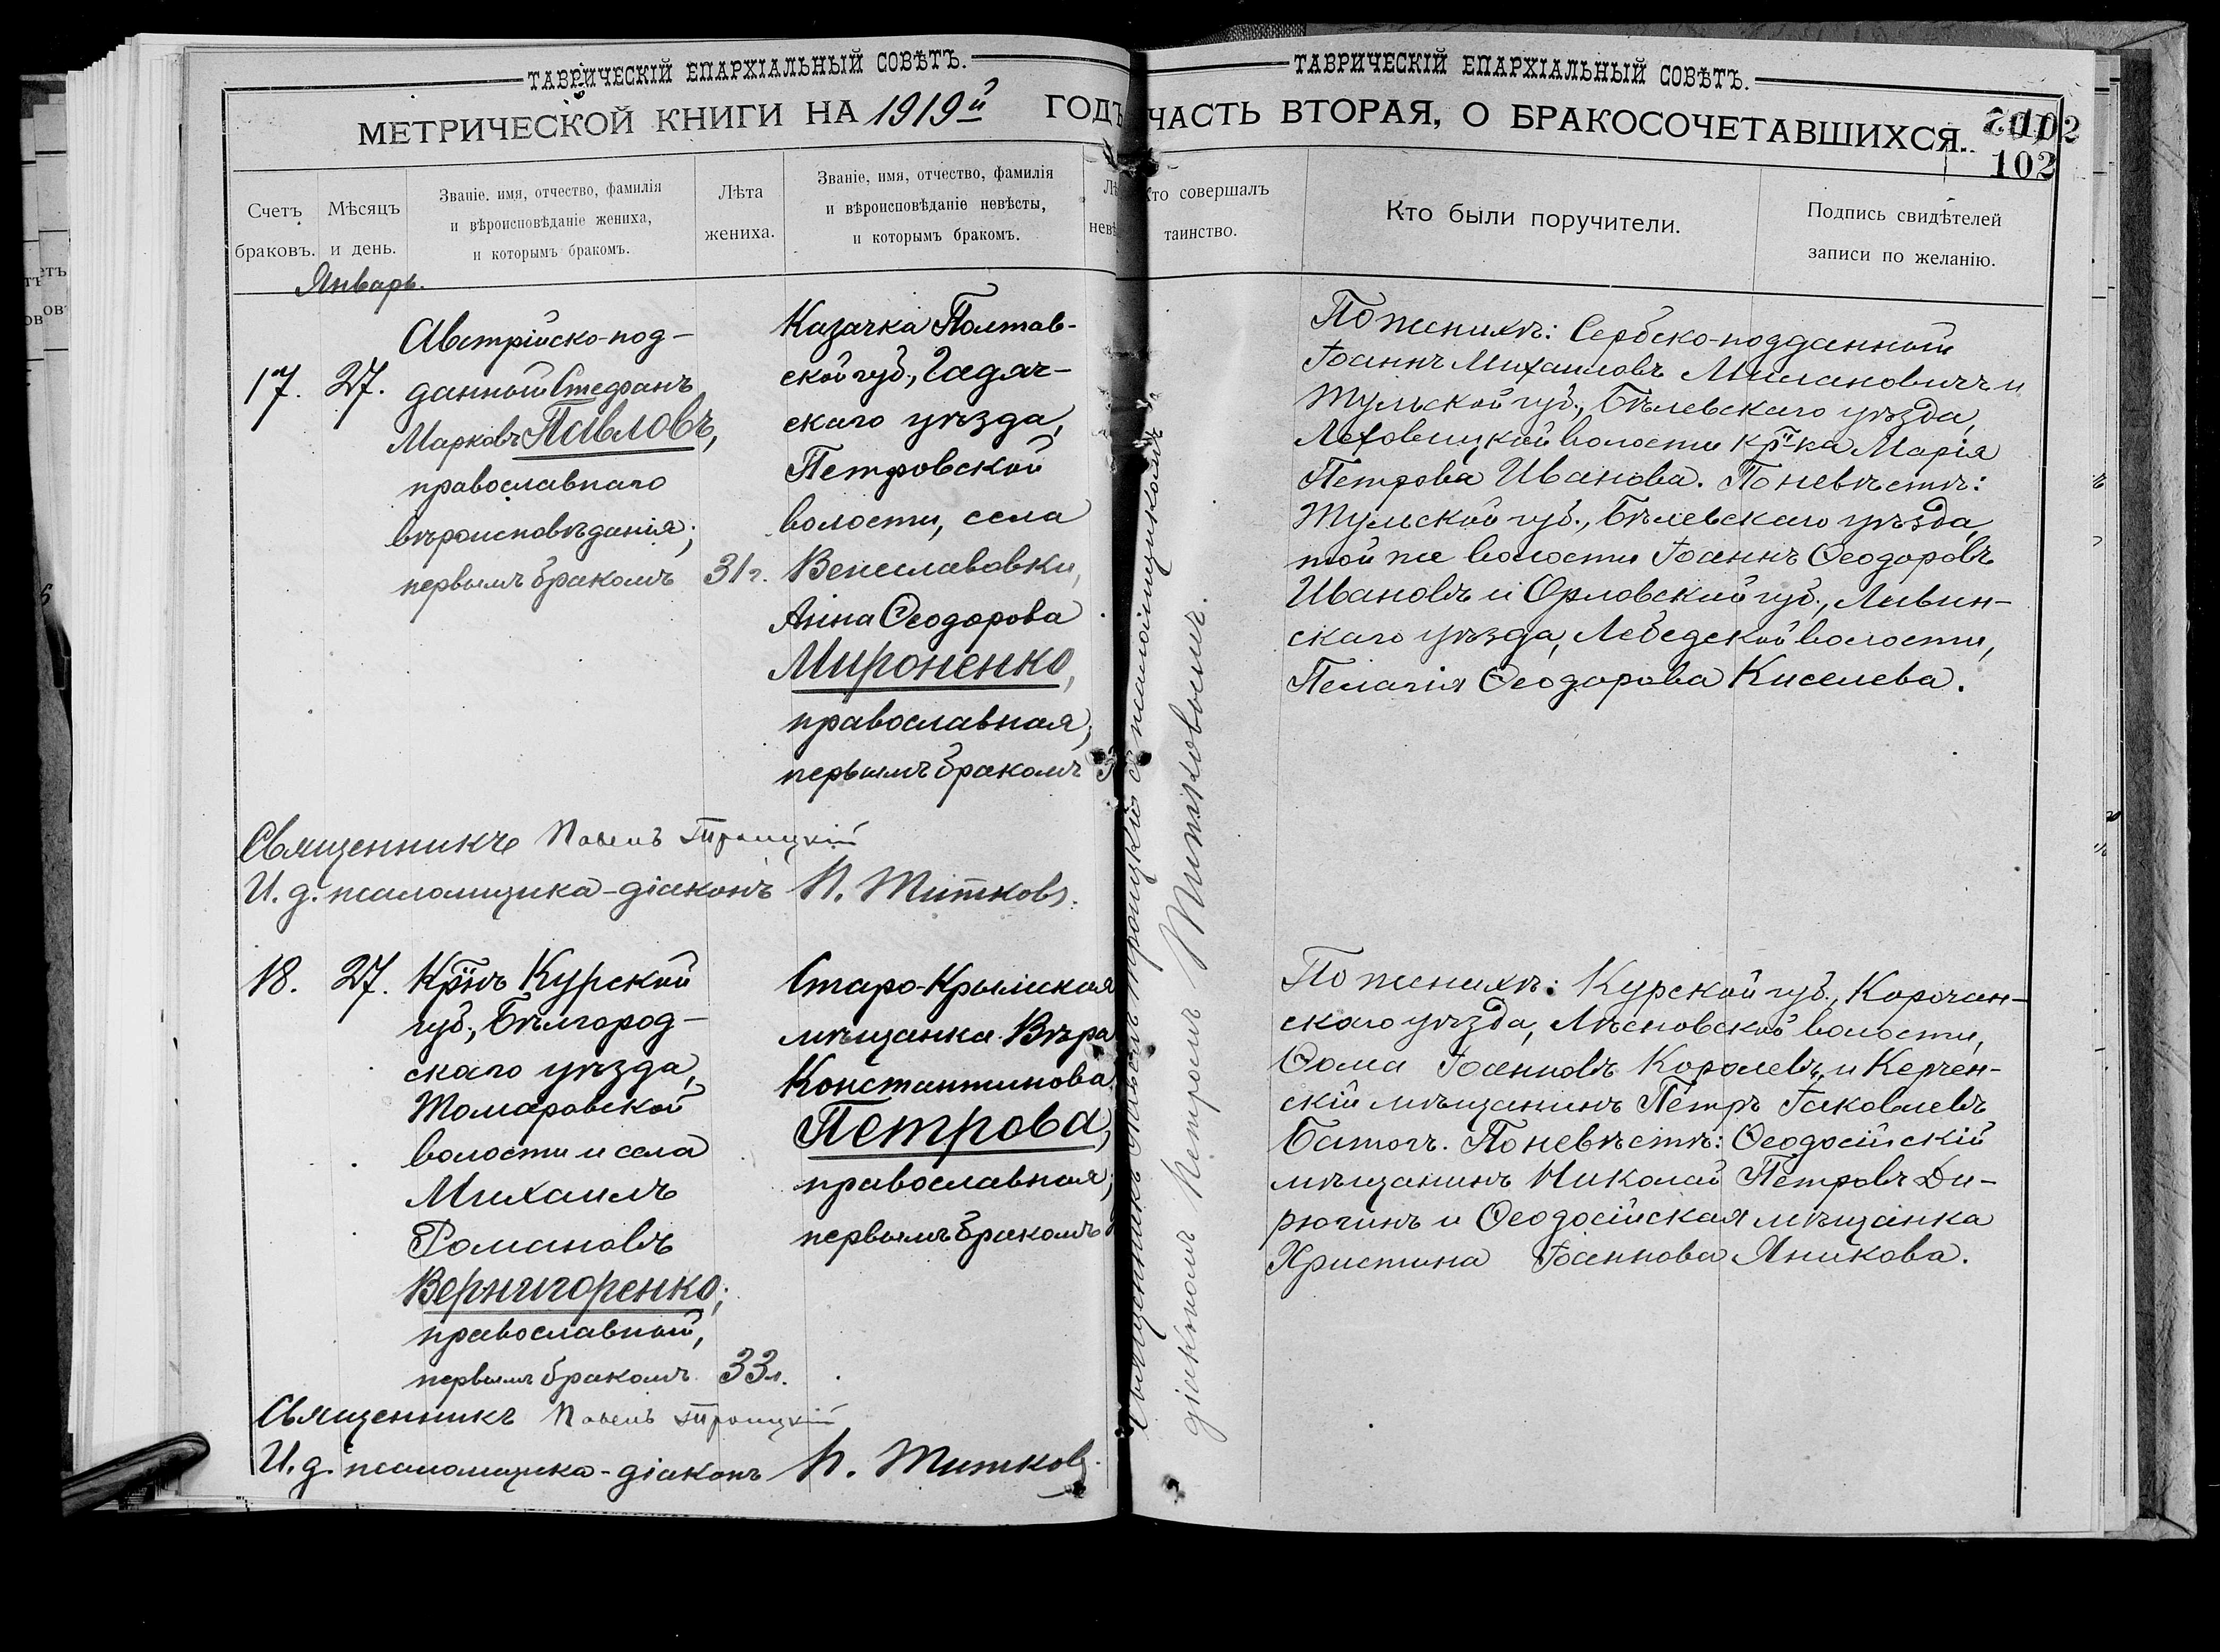 ТАВРИЧЕСКІЙ ЕПАРХІАЛЬНЫЙ СОВѢТЪ.
МЕТРИЧЕСКОЙ КНИГИ НА 1919й ГОДЪ
Счетъ браковъ.
Мѣсяцъ и день.
Званіе, имя, отчество, фамилія
и вѣроисповѣданіе жениха,
и которымъ бракомъ.
Лѣта
жениха.
Званіе, имя, отчество, фамилія
и вѣроисповѣданіе невѣсты,
и которымъ бракомъ.
Январь.
17. 27.
Австрійско-под-
данный Стефанъ
Марковъ Павловъ,
православнаго
вѣроисповѣданія;
первымъ бракомъ
31 г.
Казачка Полтав-
ской губ., Гадяч-
скаго уѣзда,
Петровской
волости, села
Венеславовки,
Анна Ѳеодорова
Мироненко,
православная;
первымъ бракомъ
Священникъ Павелъ Троицкій
И. д. псаломщика-діаконъ П. Титковъ.
18. 27.
Кр̅инъ Курской
губ., Бѣлгород-
скаго уѣзда,
Томаровской
волости и села
Михаилъ
Романовъ
Вернигоренко;
православный,
первымъ бракомъ
33 л.
Старо-Крымская
мѣщанка Вѣра
Константинова
Петрова,
православная;
первымъ бракомъ
Священникъ Павелъ Троицкій
И. д. псаломщика-діаконъ П. Титковъ.
ТАВРИЧЕСКІЙ ЕПАРХІАЛЬНЫЙ СОВѢТЪ.
ЧАСТЬ ВТОРАЯ, О БРАКОСОЧЕТАВШИХСЯ.
102
Кто совершалъ
таинство.
Кто были поручители.
Подпись свидѣтелей
записи по желанію.
Священникъ Павелъ Троицкій съ псаломщикомъ
діакономъ Петромъ Титковымъ.
По женихѣ: Сербско-подданный
Іоаннъ Михаиловъ Милановичъ и
Тульской губ., Бѣлевскаго уѣзда,
волости кр-ка Марія
Петрова Иванова. По невѣстѣ:
Тульской губ., Бѣлевскаго уѣзда,
той же волости Іоаннъ Ѳеодоровъ
Ивановъ и Орловской губ., Ливен-
скаго уѣзда, Лебедской волости,
Пелагія Ѳеодорова Киселева.
По женихѣ: Курской губ., Корочан-
скаго уѣзда, Лѣсновской волости,
Ѳома Іоанновъ Королевъ, и Керчен-
скій мѣщанинъ Петръ Іаковлевъ
Батогъ. По невѣстѣ: Ѳеодосійскій
мѣщанинъ Николай Петровъ Ди-
рюгинъ и Ѳеодосійская мѣщанка
Христина Іоаннова Яникова.